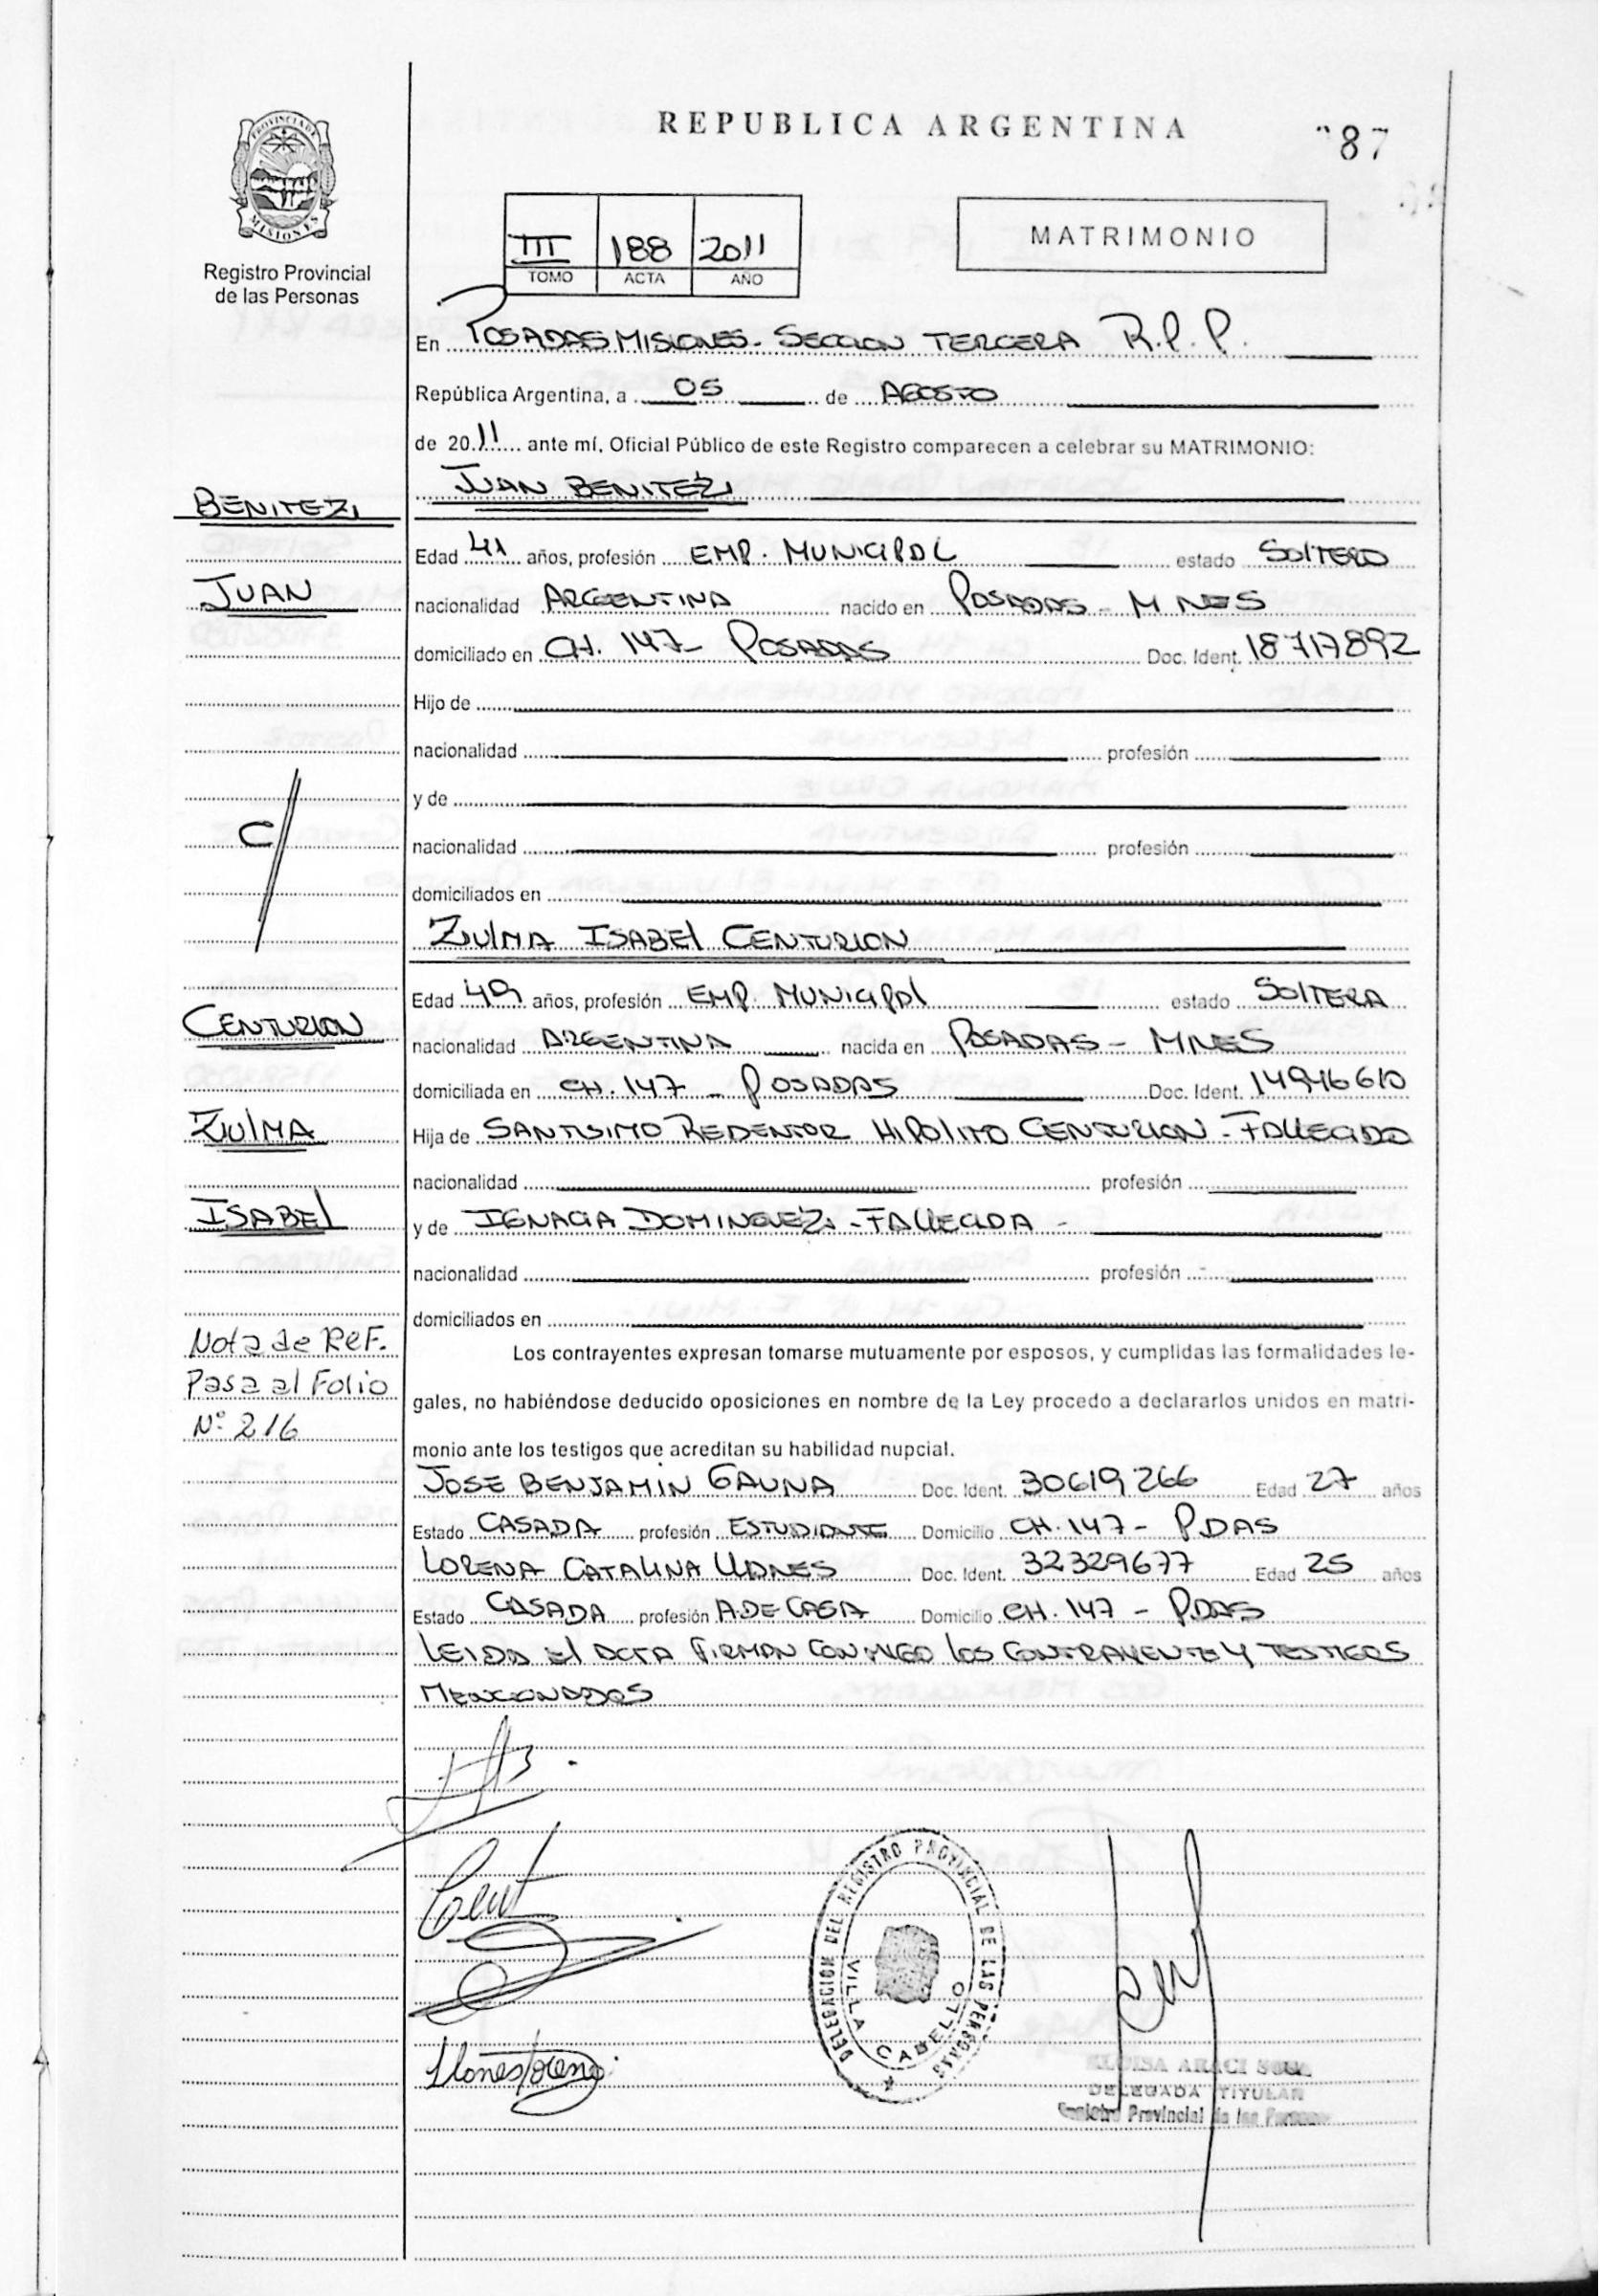 REPUBLICA ARGENTINA
87
PROVINCIA DE MISIONES
Registro Provincial
de las Personas
III 188 2011
TOMO ACTA AÑO
MATRIMONIO
En POSADAS MISIONES - SECCION TERCERA R.P.P.
República Argentina, a 05 de AGOSTO
de 2011 ante mí, Oficial Público de este Registro comparecen a celebrar su MATRIMONIO:
JUAN BENITEZ
BENITEZ
Edad 41 años, profesión EMP. MUNICIPAL estado SOLTERO
JUAN
nacionalidad ARGENTINA nacido en POSADAS - M NES
domiciliado en CH. 147 - POSADAS Doc. Ident. 18717892
Hijo de
nacionalidad profesión
y de
C/
nacionalidad profesión
domiciliados en
ZULMA ISABEL CENTURION
Edad 49 años, profesión EMP. MUNICIPAL estado SOLTERA
CENTURION
nacionalidad ARGENTINA nacida en POSADAS - MNES
domiciliada en CH. 147 - POSADAS Doc. Ident. 14946610
ZULMA
Hija de SANTISIMO REDENTOR HIPOLITO CENTURION - FALLECIDO
nacionalidad profesión
ISABEL
y de IGNACIA DOMINGUEZ - FALLECIDA -
nacionalidad profesión
domiciliados en
Nota de Ref.
Pasa al Folio
N° 216
Los contrayentes expresan tomarse mutuamente por esposos, y cumplidas las formalidades le-
gales, no habiéndose deducido oposiciones en nombre de la Ley procedo a declararlos unidos en matri-
monio ante los testigos que acreditan su habilidad nupcial.
JOSE BENJAMIN GAUNA Doc. Ident. 30619266 Edad 27 años
Estado CASADA profesión ESTUDIANTE Domicilio CH. 147 - PDAS
LORENA CATALINA LLANES Doc. Ident. 32329677 Edad 25 años
Estado CASADA profesión A.DE CASA Domicilio CH. 147 - PDAS
LEIDA EL ACTA FIRMAN CONMIGO LOS CONTRAYENTES Y TESTIGOS
MENCIONADOS
DELEGACION DEL REGISTRO PROVINCIAL DE LAS PERSONAS
VILLA CABELLO
DELEGADA TITULAR
Registro Provincial de las Personas